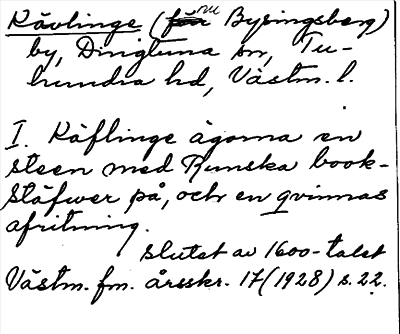 Kävlinge (nu Byringsberg)
by, Dingtuna sn, Tu-
hundra hd, Västm. l.
I. Käflinge ägorna en
steen med Runska book-
stäfwer på, och en qvinnas
afritning.
Slutet av 1600-talet
Västm. fm. årsskr. 17 (1928) s. 22.